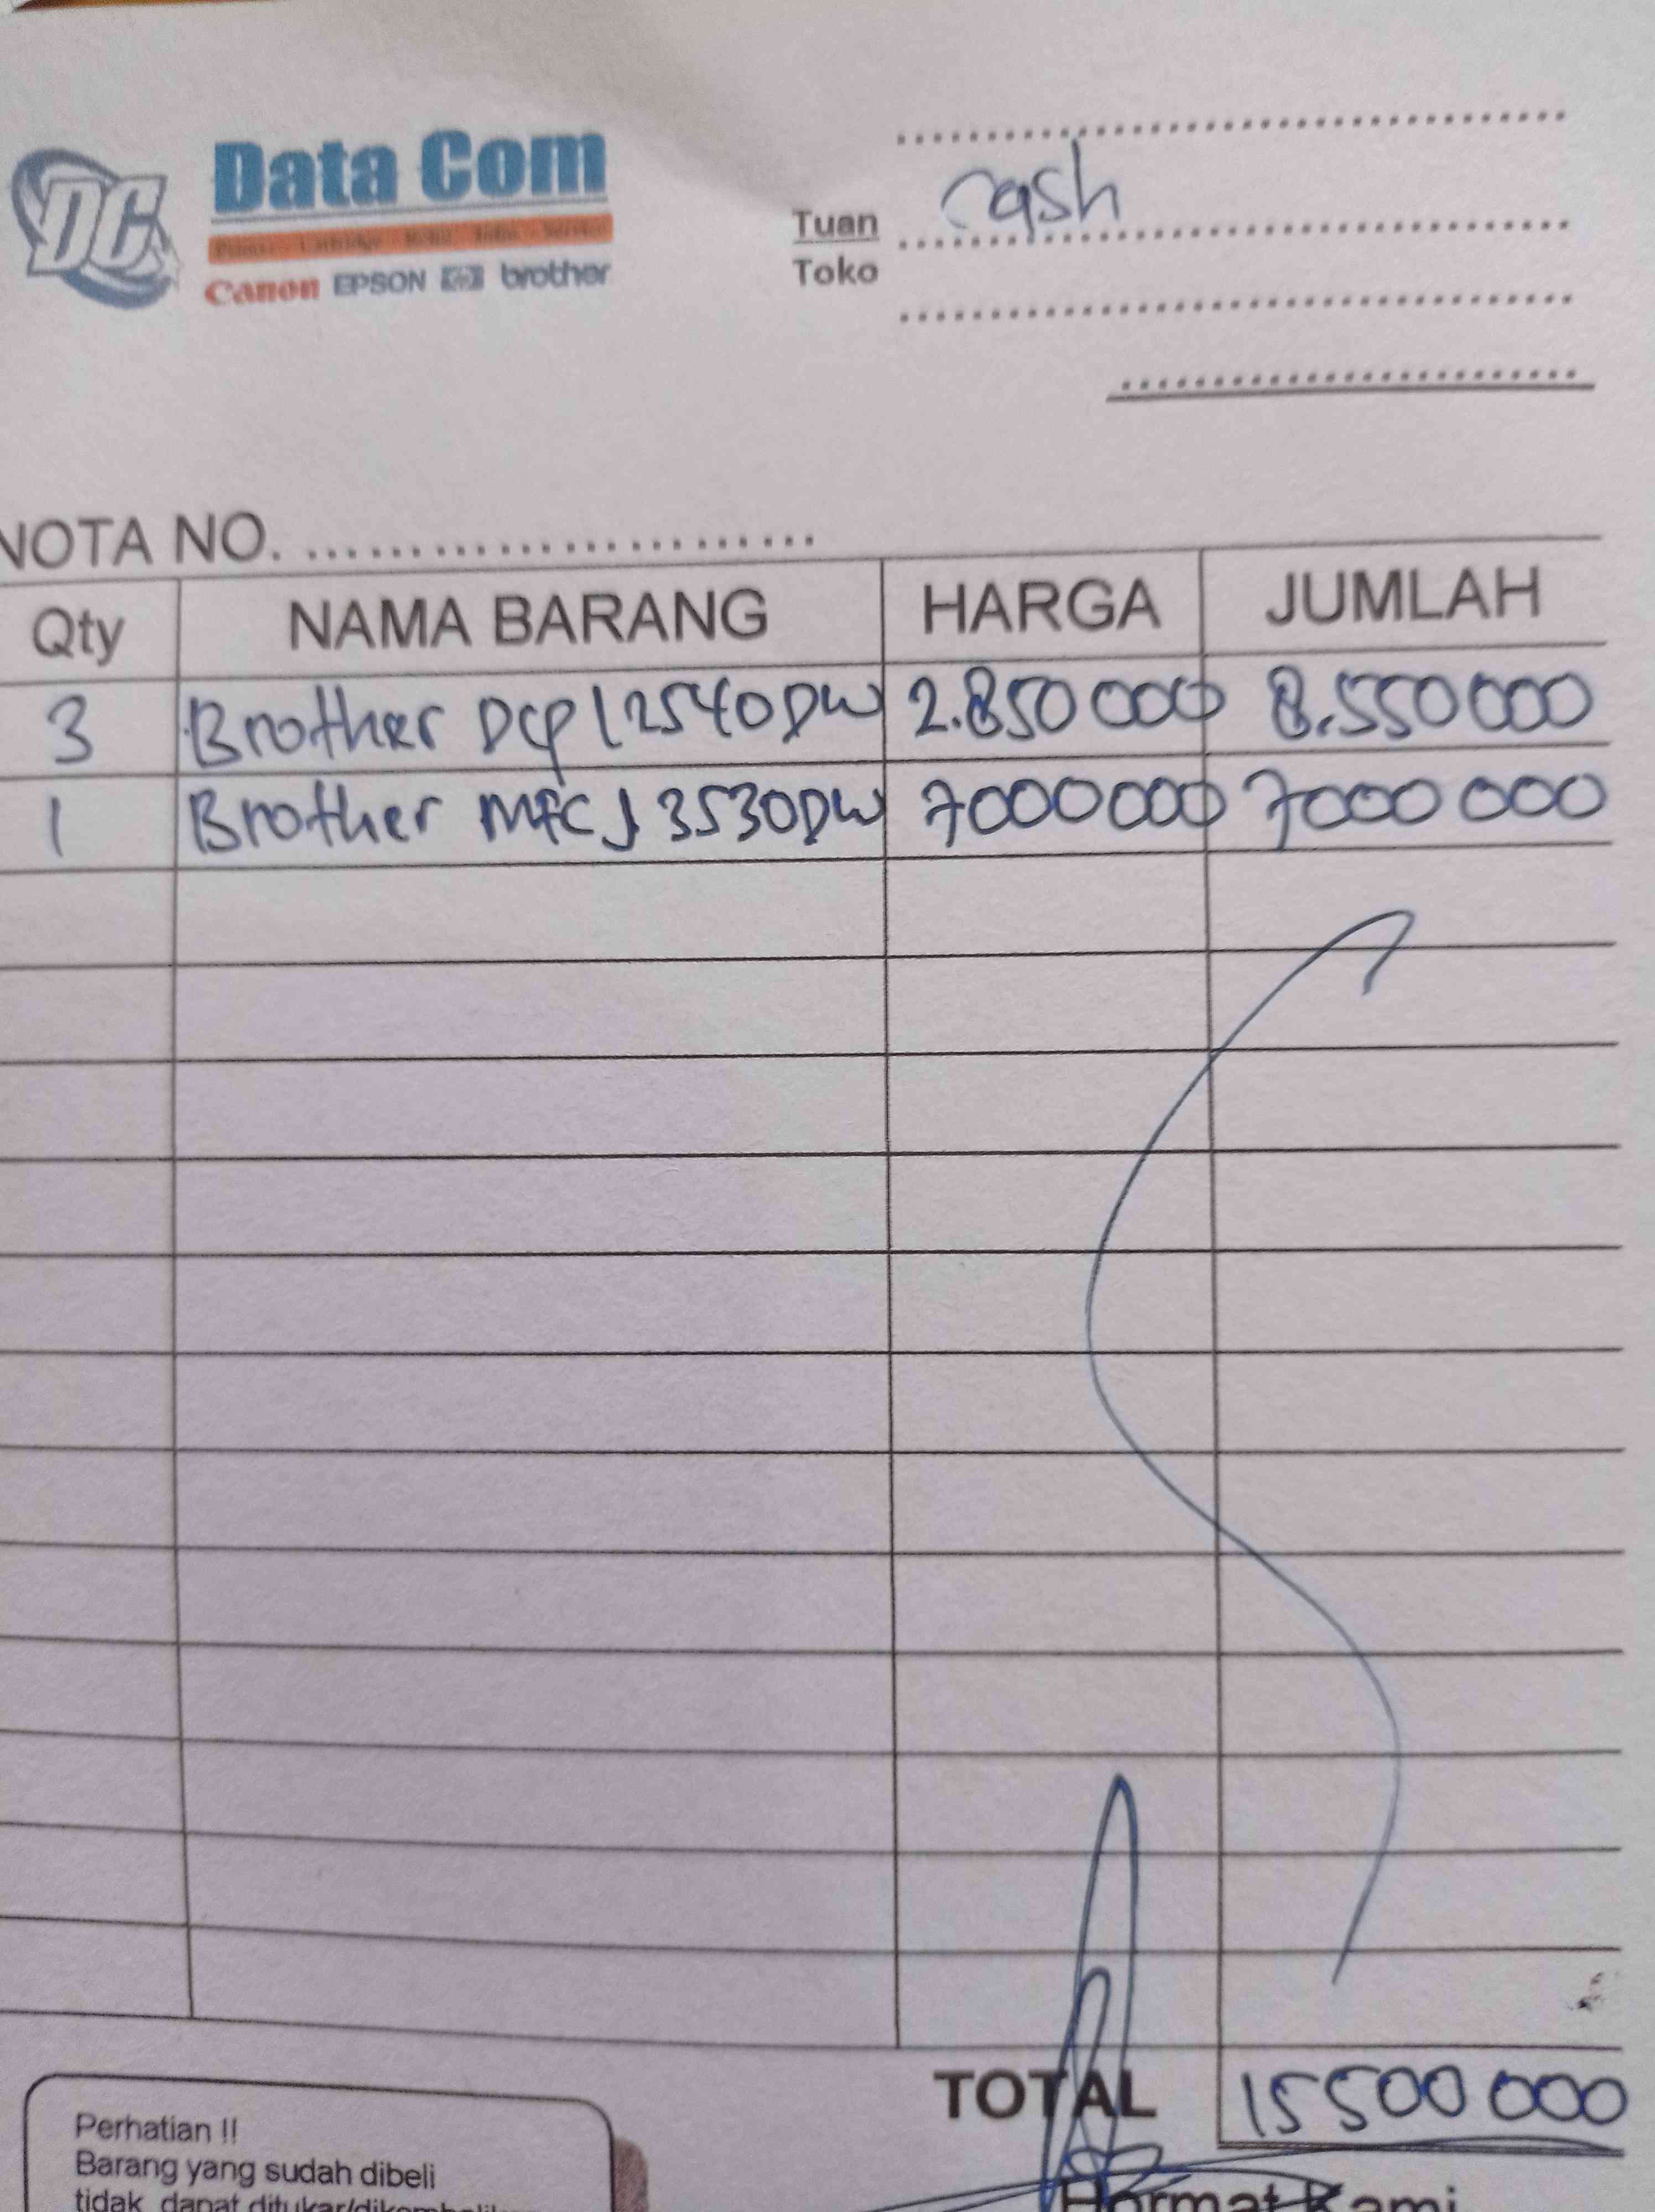 DC
Data Com
Canon EPSON hp brother
cash
Tuan
Toko
NOTA NO.
Qty NAMA BARANG HARGA JUMLAH
3 Brother DCP L2540DW 2.850 000 8.550 000
1 Brother MFC J 3530DW 7000 000 7000 000
TOTAL 15 500 000
Perhatian !!
Barang yang sudah dibeli
tidak dapat ditukar/
Hormat Kami